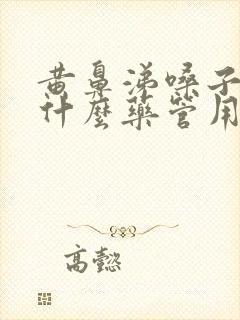 黄鼻涕嗓子
什麼藥管用
高懿